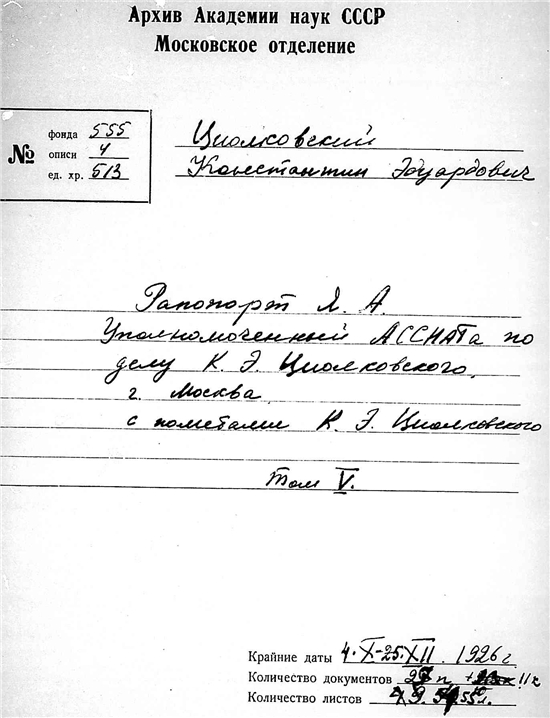 Архив Академии наук СССР
Московское отделение
№
фонда 555
описи 4
ед. хр. 513
Циолковский
Константин Эдуардович
Рапопорт Я. А.
Уполномоченный АССНАТа по
делу К. Э. Циолковского,
г. Москва
с пометами К. Э. Циолковского
Том V.
Крайние даты 4.X-25.XII. 1926 г
Количество документов
Количество листов 55 л.